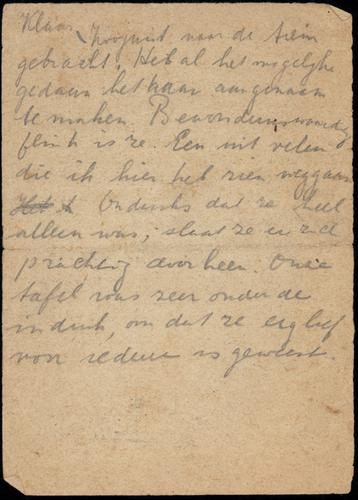 Klaar, zoojuist naar de trein
gebracht. Heb al het mogelijke
gedaan het haar aangenaam
te maken. Bewonderenswaardig
flink is ze. Een uit velen
die ik hier heb zien weggaan
Ondanks dat ze heel
alleen was, slaat ze er zich
prachtig doorheen. Onze
tafel was zeer onder de
indruk, om dat ze erg lief
voor iedereen is geweest.